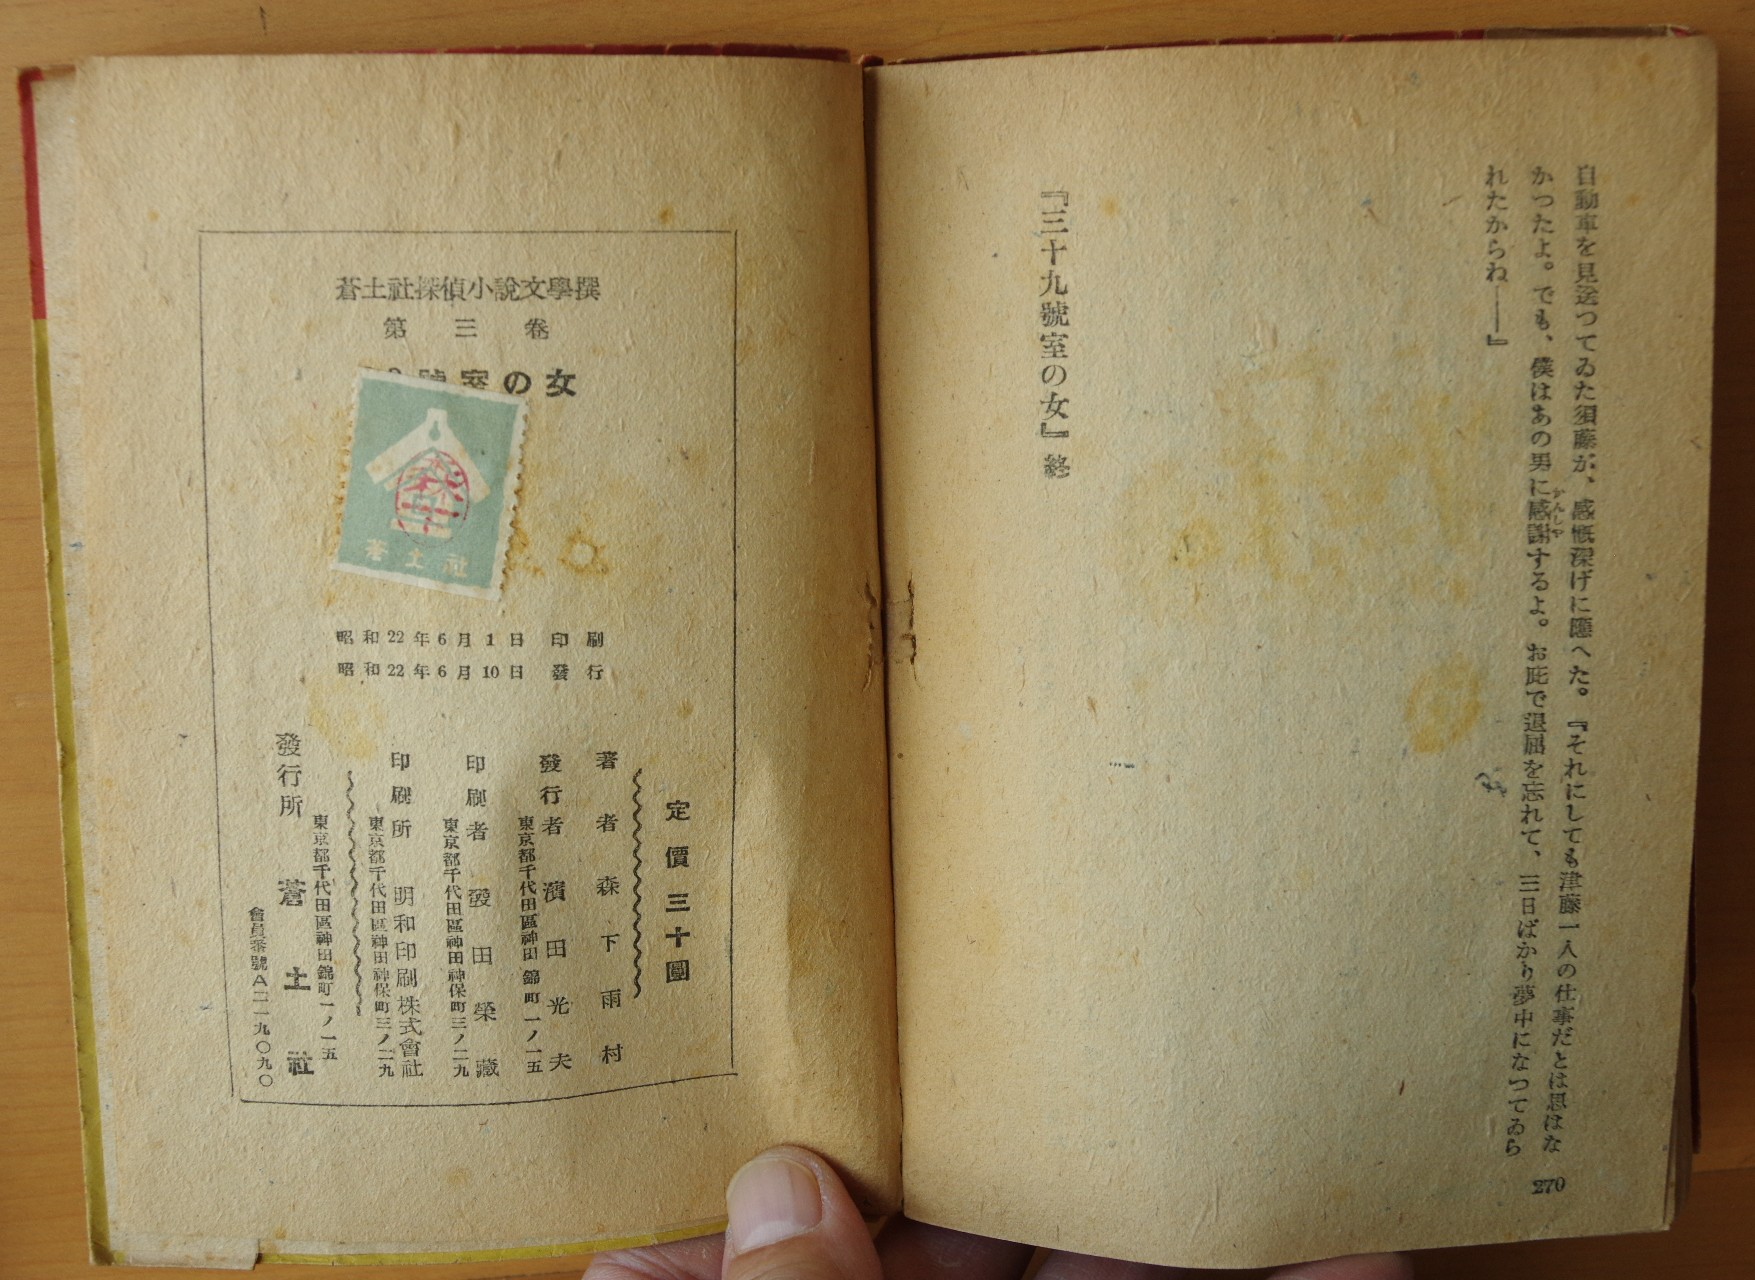 自動車を見送つてゐた須藤が、感慨深げに應へた。『それにしても津藤一人の仕事だとは思はな
かつたよ。でも、僕はあの男に感謝するよ。お庇で退屈を忘れて、三日ばかり夢中になつてゐら
かんしや
れたからね――』
『三十九號室の女』終
270
蒼土社探偵小說文學撰
第三卷
號室の女
蒼土社
昭和22年6月1日 印刷
昭和22年6月10日 發行
定價三十圓
著者 森下雨村
發行者 濱田光夫
東京都千代田區神田錦町一ノ一五
印刷者 發田榮藏
東京都千代田區神田神保町三ノ二九
印刷所 明和印刷株式會社
東京都千代田區神田神保町三ノ二九
發行所 蒼土社
東京都千代田區神田錦町一ノ一五
會員番號A二一九〇九〇